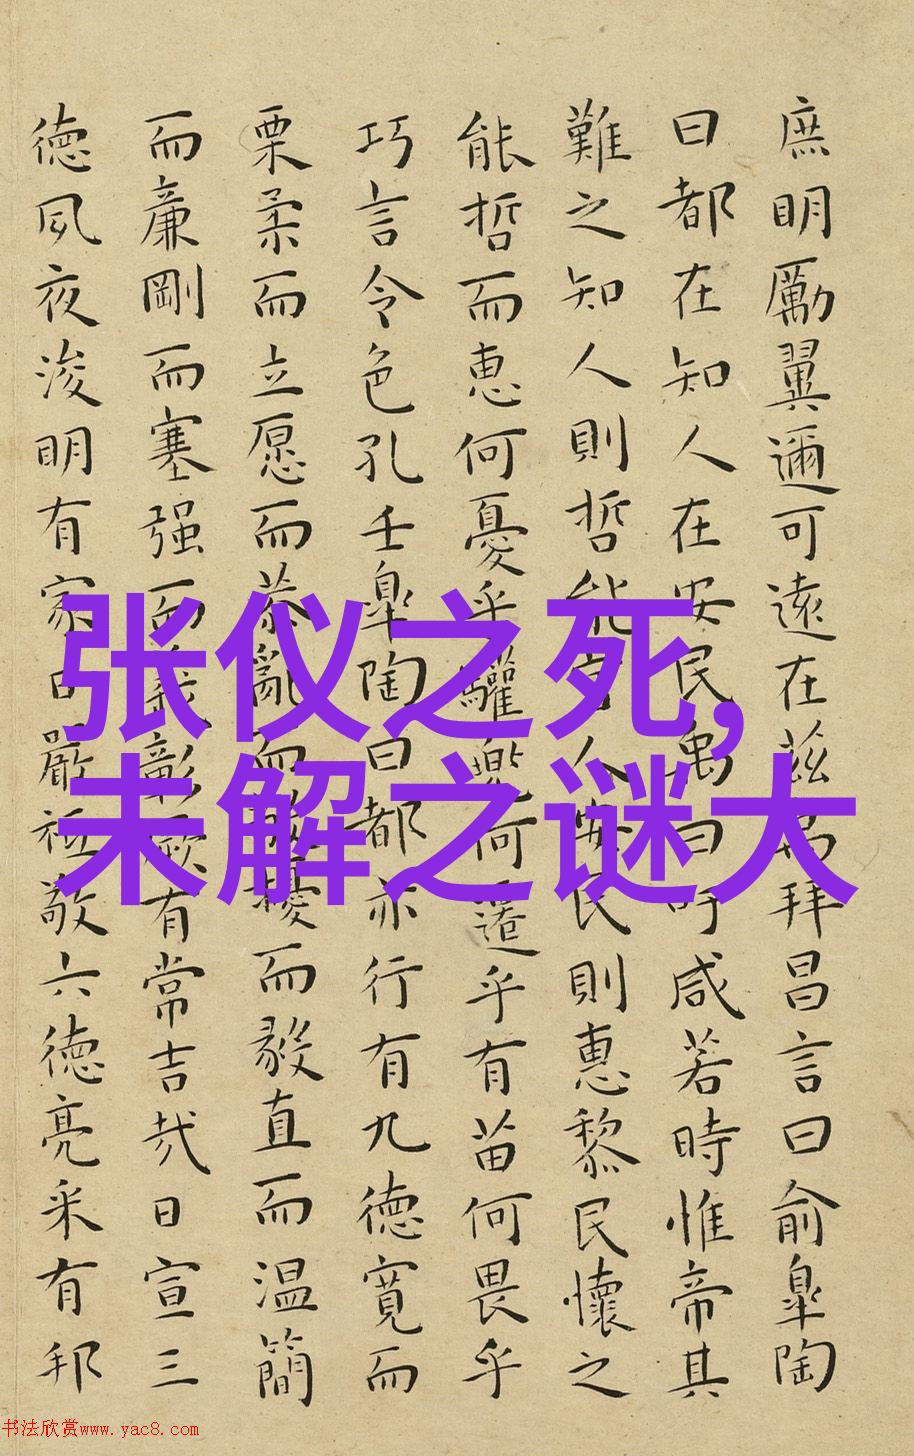 庶明勵翼邇可遠在茲禹拜昌言曰俞皐陶
曰都在知人在安民禹曰吁咸若時惟帝其
難之知人則哲能官人安民則惠黎民懷之
能哲而惠何憂乎驩兜何遷乎有苗何畏乎
巧言令色孔壬皐陶曰都亦行有九德寬而
栗柔而立愿而恭亂而敬擾而毅直而温簡
而廉剛而塞强而義彰厥有常吉哉日宣三
德夙夜浚明有家日嚴祗敬六德亮采有邦
张仪之死,
未解之谜大
书法欣赏www.yac8.com